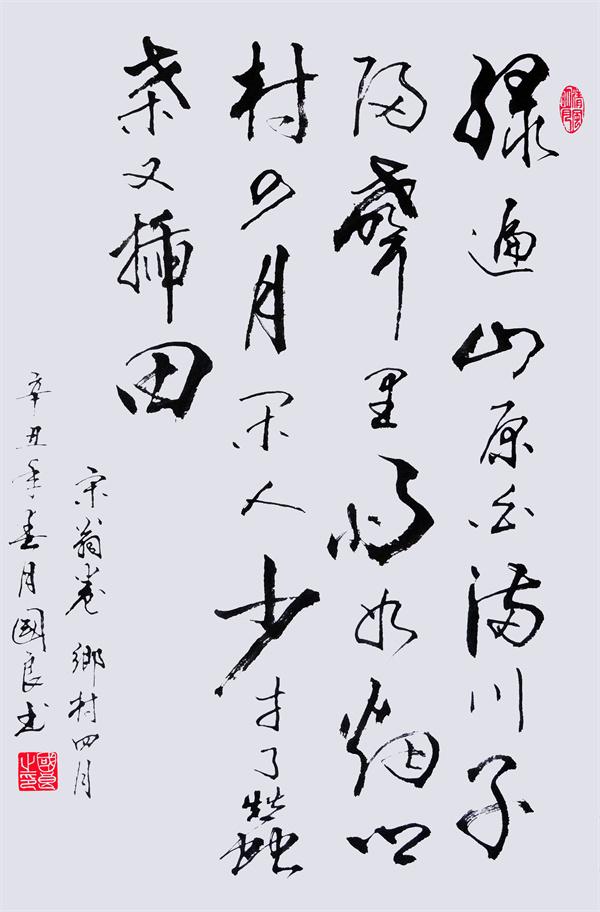 绿遍山原白满川子
规聲里雨如烟心
村四月闲人少才了蠶
桑又插田
宋翁卷 鄉村四月
辛丑年春月國良书
國良之印